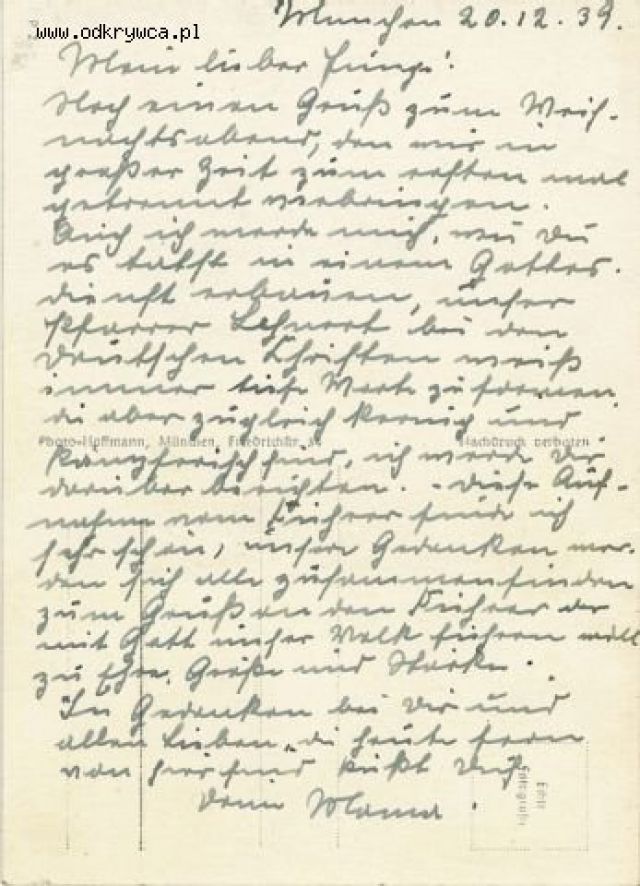 www.odkrywca.pl
München 20.12.39.
Mein lieber Junge!
Noch einen Gruß zum Weih-
nachtsabend, den wir in
großer Zeit zum ersten mal
getrennt verbringen.
Auch ich werde mich, wie Du
es tatst in einem Gottes-
dienst erbauen, unser
Pfarrer Lehnert bei den
Deutschen Christen weiß
immer tiefe Worte zu formen
die aber zugleich kernig und
Photo-Hoffmann, München, Friedrichstr. 34 Nachdruck verboten
kämpferisch sind, ich werde Dir
darüber berichten. - Diese Auf-
nahme vom Führer finde ich
sehr schön, unsere Gedanken wer-
den sich alle zusammenfinden
zum Gruß an den Führer der
mit Gott unser Volk führen will
zu Ehre, Größe und Stärke.
In Gedanken bei Dir und
allen Lieben, die heute fern
von hier sind küßt Dich
Deine Mama.